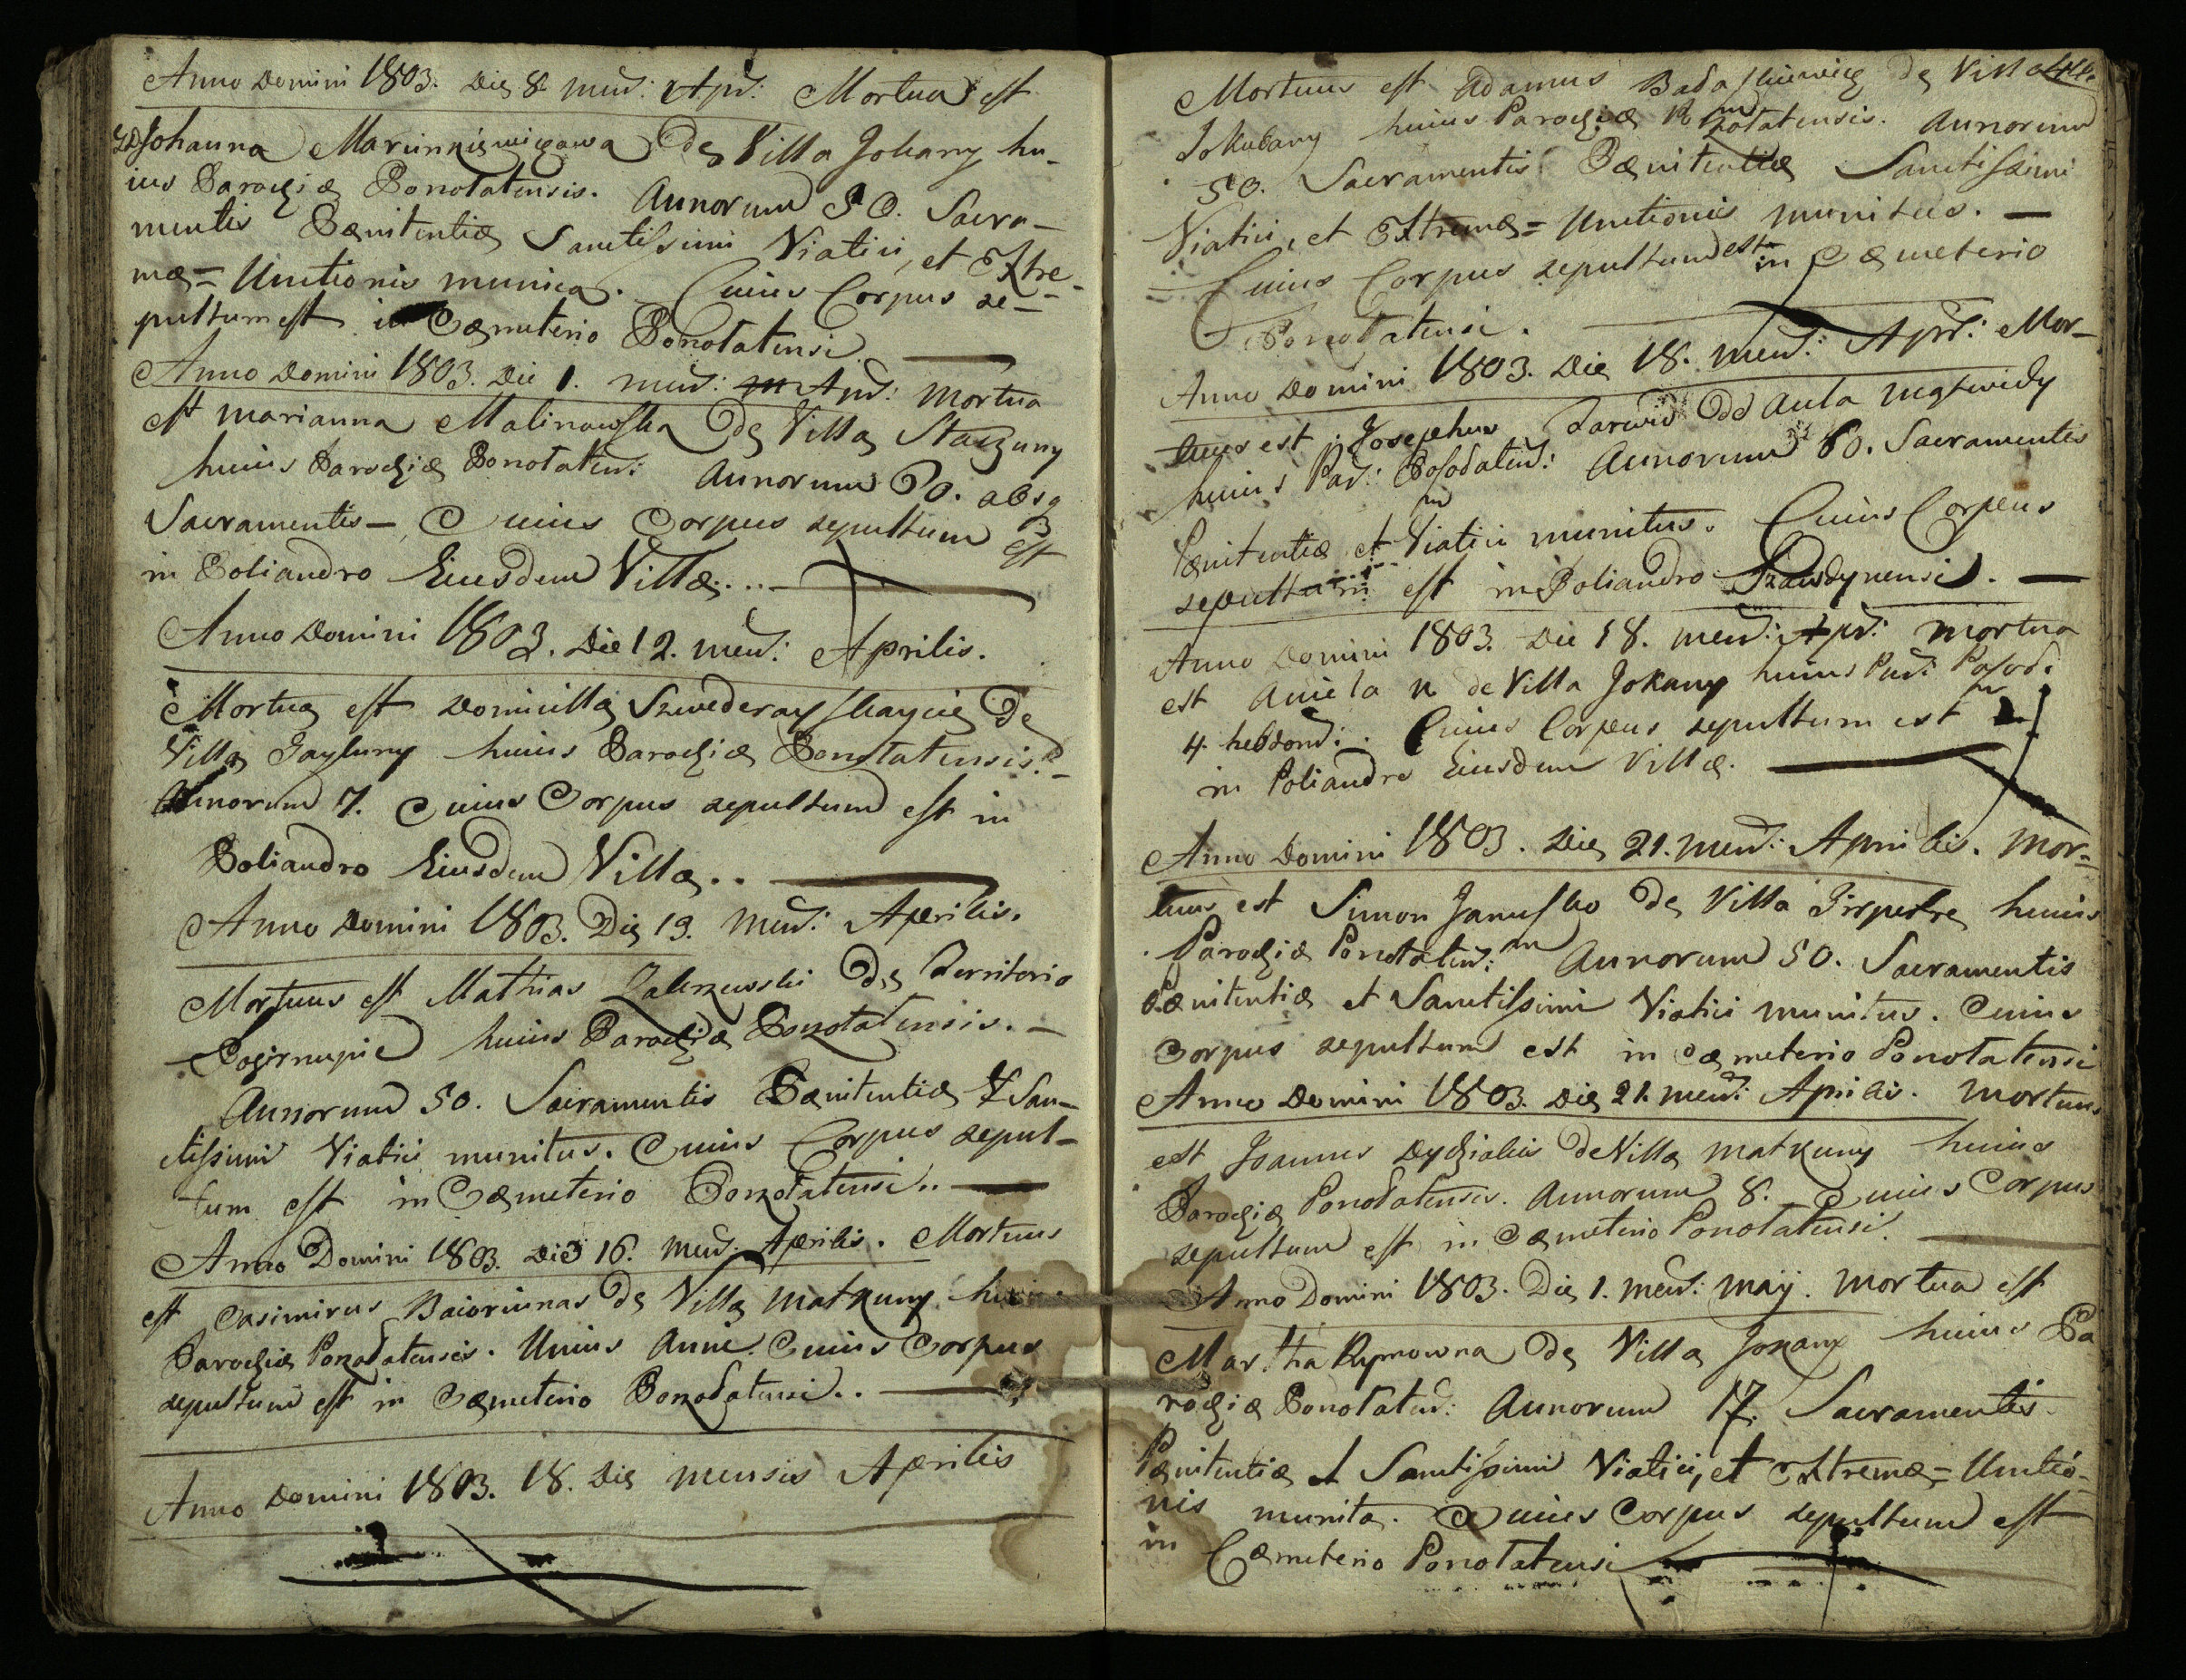 Anno Domini 1803. Die 8. Mens: Apr: Mortua est
Johanna de Villa Johany hu-
ius Parochiæ Ponotatensis. Annorum 50. Sacra-
mentis Pænitentiæ Sanctissimi Viatici, et Extre-
mæ= Unctionis munita. Cuius Corpus se-
pultum est in Cæmeterio Ponotatensi
Anno Domini 1803. Die 1. mens: Apr: Mortua
est Marianna Malinowska De Villa Staczuny
huius Parochiæ Ponotaten: Annorum 60. absq
Sacramentis - Cuius Corpus sepultum est
in Poliandro Eiusdem Villæ...
Anno Domini 1803. Die 12. mens: Aprilis.
Mortua est Domicilla De
Villa Gayluny huius Parochiæ Ponotatensis. -
Annorum 7. Cuius Corpus sepultum est in
Poliandro Eiusdem Villæ..
Anno Domini 1803. Die 13. Mens: Aprilis.
Mortuus est Mathias Zalerzewski De Territorio
Pogirnupie huius Parochiæ Ponotatensis. -
Annorum 50. Sacramentis Pænitentiæ & San-
ctissimi Viatici munitus. Cuius Corpus sepul-
tum est in Cæmeterio Ponotatensi..
Anno Domini 1803. Die 16. Mens: Aprilis. Mortuus
est Casimirus Baioriunas De Villa Matkuny
Parochiæ Ponotatensis. Unius Anni. Cuius Corpus
sepultum est in Cæmeterio Ponotatensi..
Anno Domini 1803. 18. Die mensis Aprilis
Mortuus est Adamus De Villa
Jokubany huius Parochiæ Ponotatensis. Annorum
50. Sacramentis Pænitentiæ Sanctissimi
Viatici, et Extremæ= Unctionis munitus. -
Cuius Corpus sepultum est in Cæmeterio
Ponotatensi.
Anno Domini 1803. Die 18. mens: Apr: Mor-
tuus est Josephus Darwid De Aula
huius Par: Annorum 60. Sacramentis
Pænitentiæ et Viatici munitus. Cuius Corpus
sepultum est in Poliandro
Anno Domini 1803. Die 18. mens: Apr: Mortua
est Aniela N. de Villa Jokany huius Par:
4. hebdom: Cuius Corpus sepultum est
in Poliandro Eiusdem Villæ.
Anno Domini 1803. Die 21. mens: Aprilis. Mor-
tuus est Simon Janusko De Villa huius
Parochiæ Ponotaten: Annorum 50. Sacramentis
Pænitentiæ et Sanctissimi Viatici munitus. Cuius
Corpus sepultum est in Cæmeterio Ponotatensi
Anno Domini 1803. Die 21. mens: Aprilis. Mortuus
est Joannes de Villa Matkuny huius
Parochiæ Ponotatensis. Annorum 8. Cuius Corpus
sepultum est in Cæmeterio Ponotatensi.
Anno Domini 1803. Die 1. mens: Maij. Mortua est
Martha Rymowna De Villa huius Pa
rochiæ Ponotaten: Annorum 17. Sacramentis
Pænitentiæ et Sanctissimi Viatici, et Extremæ= Unctio-
nis munita. Cuius Corpus sepultum est
in Cæmeterio Ponotatensi